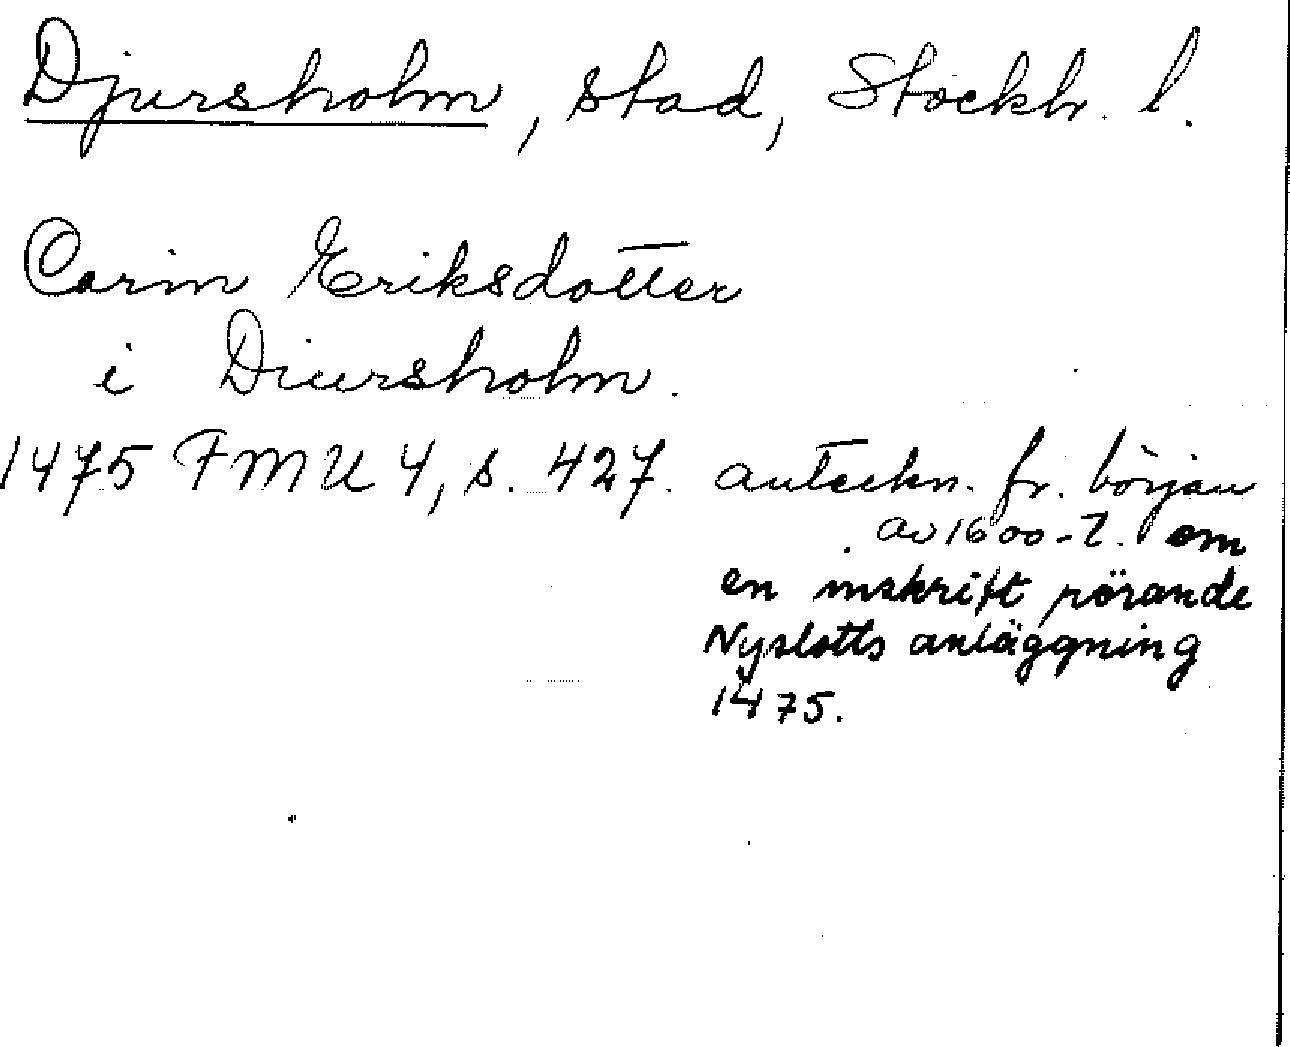 Djursholm, stad, Stockh. l.
Carin Eriksdotter
i Diursholm.
1475 FMU 4, s. 427. anteckn. fr. början
av 1600-t. om
en inskrift rörande
Nyslotts anläggning
1475.